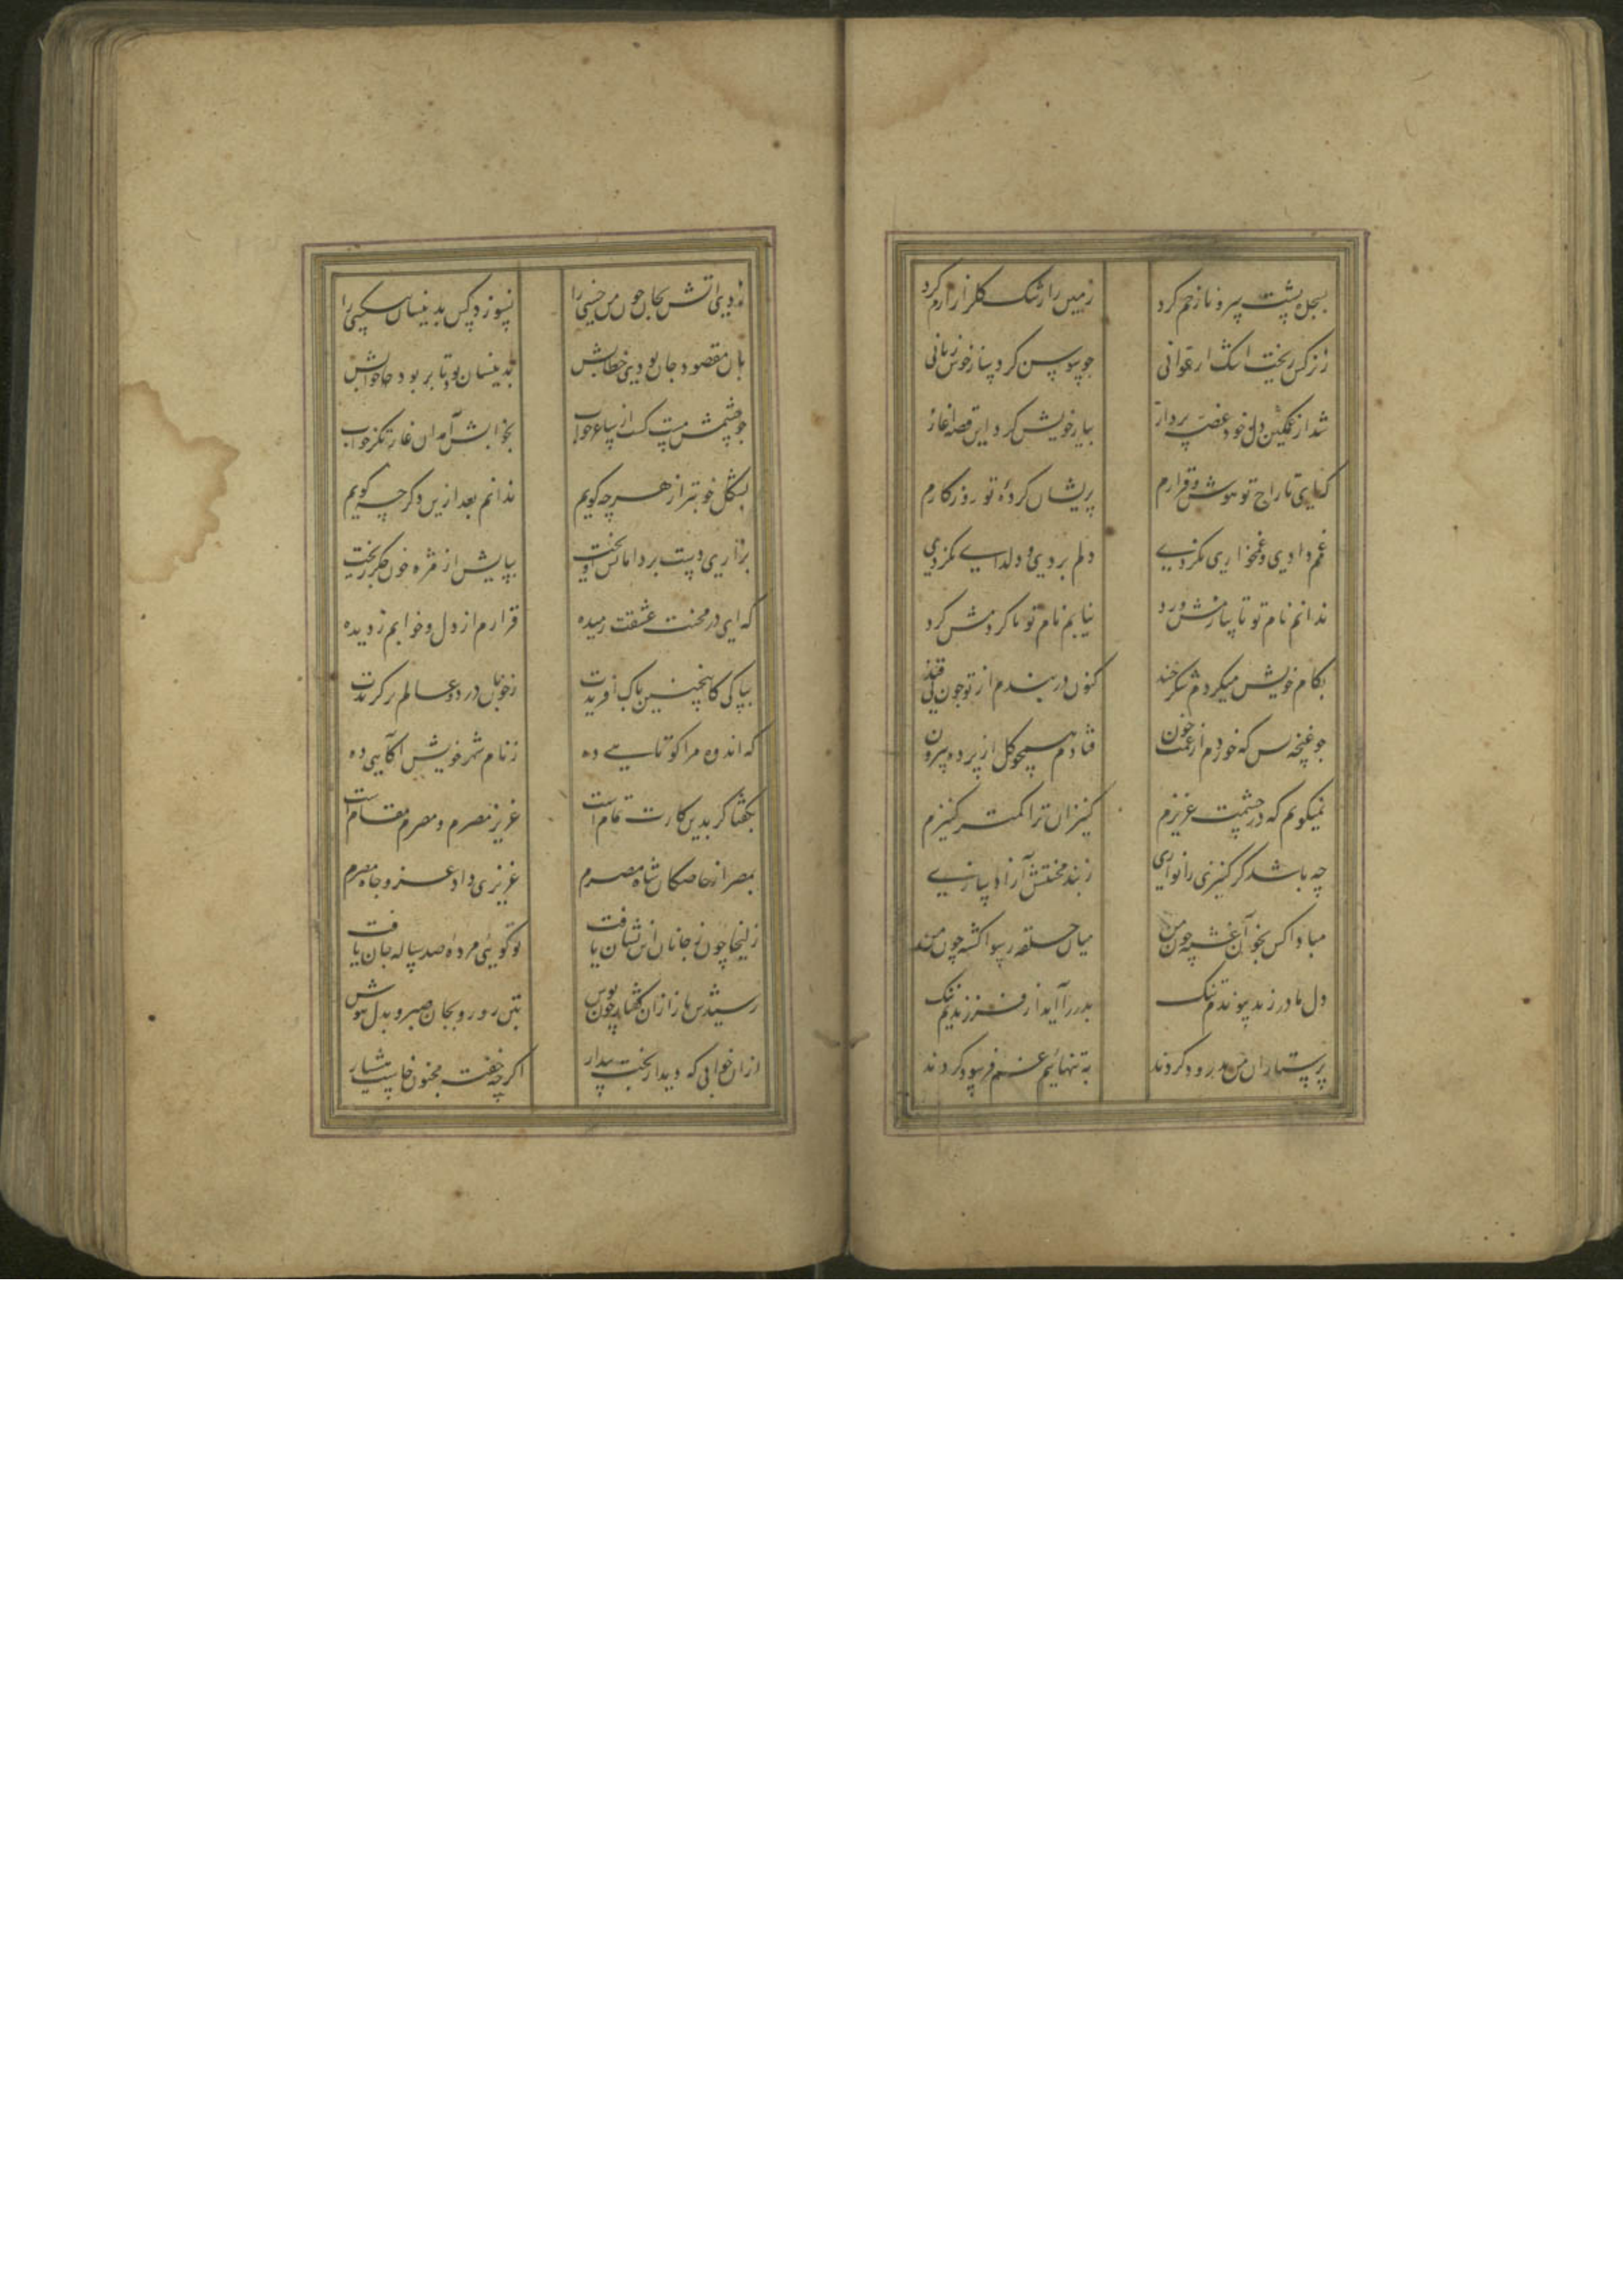 بسجده پشت سرو ناز خم کرد زمین را رشک گلزار ارم کرد
ز نرگس ریخت اشک ارغوانی چو سوسن کرد ساز خوش زبانی
شد از غمگین دل خود غصه پرداز بیار خویش کرد این قصه آغاز
که ای تاراج تو هوش و قرارم پریشان کرده تو روزگارم
غم دادی و غمخواری نکردی دلم بردی و دلداری نکردی
ندانم نام تو تا سازمش ورد نیابم نام تو تا گردمش گرد
بکام خویش میکردم شکرخند کنون در بندم از توچون نی قند
چو غنچه بس که خوردم از غمت خون فتادم همچو گل از پرده بیرون
نمیگویم که در چشمت عزیزم کنیزان ترا کمتر کنیزم
چه باشد گر کنیزی را نوازی ز بند محنتش آزاد سازی
مبادا کس بخون آغشته چون من میان خلق رسوا گشته چون من
دل مادر ز بد پیوندیم تنگ پدر را آید از فرزندیم ننگ
پرستاران من پدرود کردند به تنهائیم غم فرسود کردند
زدی آتش بجان چون من خسی را نسوزد کس بدینسان بیکسی را
بآن مقصود جان بودی خطابش بدینسان بود تا بربود خوابش
چو چشمش مست گشت از ساغر خواب بخوابش آمد آن غارتگر خواب
بشکل خوبتر از هرچه گویم ندانم بعد ازین دگر چه گویم
بزاری دست بر دامانش آویخت بپایش از مژه خون جگر ریخت
که ای در محنت عشقت رمیده قرارم از دل و خوابم ز دیده
بپاکی کاینچنین پاک آفریدت ز خوبان دو عالم برگزیدت
که اندوه مرا کوتاهیی ده ز نام شهر خویش آگاهیی ده
بگفتا گر بدین کارت تمام است عزیز مصرم و مصرم مقام است
بمصر از خاصگان شاه مصرم عزیزی داد عز و جاه مصرم
زلیخا چون ز جانان این نشان یافت تو گوئی مرده صد ساله جان یافت
رسیدش باز ازان گفتار چون نوش بتن زور و بجان صبر و بدل هوش
ازان خوابی که دید از بخت بیدار اگرچه خفت مجنون خاست هشیار